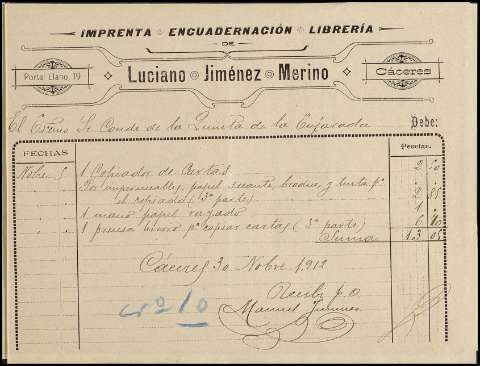 IMPRENTA ENCUADERNACIÓN LIBRERÍA
DE
Portal Llano, 19
Luciano Jiménez Merino
Cáceres
El Excmo Sr Conde de la Quinta de la Enjarada Debe:
FECHAS
Pesetas.
Nobre 5 1 Copiador de Cartas 2 50
Por impermeables, papel secante, brocha, y tinta pª
el copiador (3ª parte) 2 85
1 mano papel rayado 1
1 prensa hierro pª copiar cartas (3ª parte) 6 70
Suma 13 05
Cáceres 30 Nobre 1912
Recibí p.o.
Manuel Jimenez
nº 10